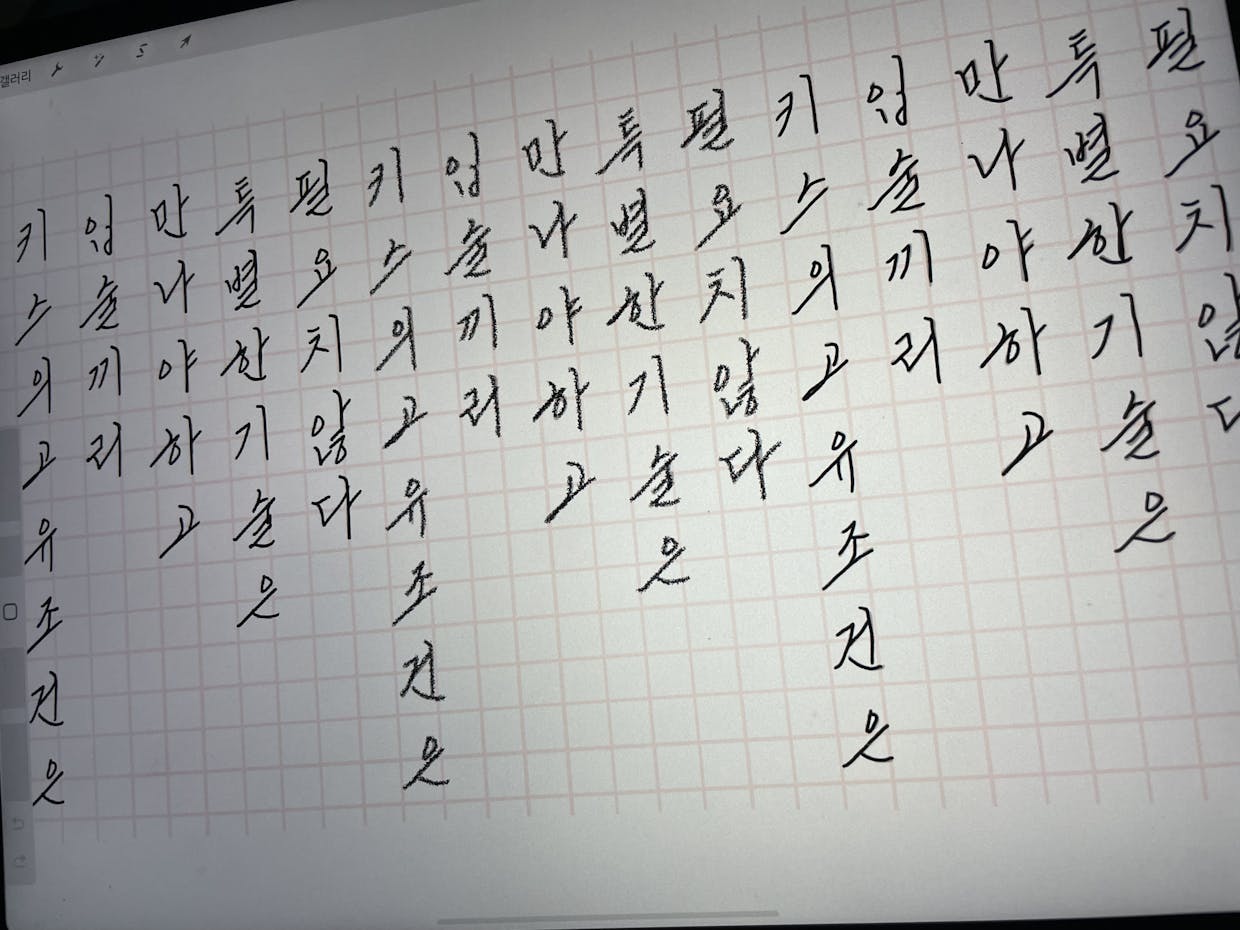 갤러리
키스의고유조건은
입술끼리
만나야하고
특별한기술은
필요치않다
키스의고유조건은
입술끼리
만나야하고
특별한기술은
필요치않다
키스의고유조건은
입술끼리
만나야하고
특별한기술은
필요치않다